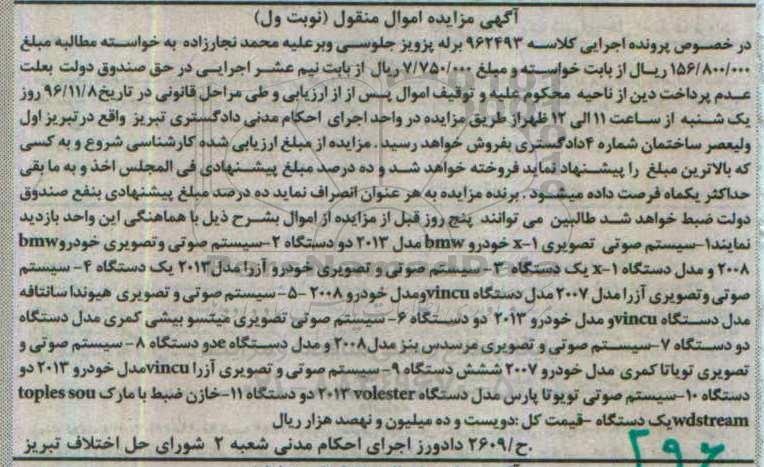 آگهی مزایده اموال منقول (نوبت ول)
در خصوص پرونده اجرایی کلاسه ۹۶۲۴۹۳ برله پزویز جلوسی وبرعلیه محمد نجارزاده به خواسته مطالبه مبلغ
۱۵۶/۸۰۰/۰۰۰ ریال از بابت خواسته و مبلغ ۷/۷۵۰/۰۰۰ ریال از بابت نیم عشر اجرایی در حق صندوق دولت بعلت
عدم پرداخت دین از ناحیه محکوم علیه و توقیف اموال پس از از ارزیابی و طی مراحل قانونی در تاریخ ۹۶/۱۱/۸ روز
یک شنبه از ساعت ۱۱ الی ۱۲ ظهر از طریق مزایده در واحد اجرای احکام مدنی دادگستری تبریز واقع در تبریز اول
ولیعصر ساختمان شماره ۴ دادگستری بفروش خواهد رسید . مزایده از مبلغ ارزیابی شده کارشناسی شروع و به کسی
که بالاترین مبلغ را پیشنهاد نماید فروخته خواهد شد و ده درصد مبلغ پیشنهادی فی المجلس اخذ و به ما بقی
حداکثر یکماه فرصت داده میشود . برنده مزایده به هر عنوان انصراف نماید ده درصد مبلغ پیشنهادی بنفع صندوق
دولت ضبط خواهد شد طالبین می توانند پنج روز قبل از مزایده از اموال بشرح ذیل با هماهنگی این واحد بازدید
نمایند۱-سیستم صوتی تصویری x-۱ خودرو bmw مدل ۲۰۱۳ دو دستگاه ۲-سیستم صوتی وتصویری خودروbmw
۲۰۰۸ و مدل دستگاه x-۱ یک دستگاه ۳- سیستم صوتی و تصویری خودرو آزرا مدل۲۰۱۳ یک دستگاه ۴- سیستم
صوتی وتصویری آزرا مدل ۲۰۰۷ مدل دستگاه vincuومدل خودرو ۲۰۰۸ -۵- سیستم صوتی و تصویری هیوندا سانتافه
مدل دستگاه vincuو مدل خودرو ۲۰۱۳ دو دستگاه ۶- سیستم صوتی تصویری میتسو بیشی کمری مدل دستگاه
دو دستگاه ۷-سیستم صوتی و تصویری مرسدس بنز مدل۲۰۰۸ و مدل دستگاه eدو دستگاه ۸- سیستم صوتی و
تصویری تویاتا کمری مدل خودرو ۲۰۰۷ ششش دستگاه ۹- سیستم صوتی و تصویری آزرا vincuمدل خودرو ۲۰۱۳ دو
دستگاه ۱۰-سیستم صوتی تویوتا پارس مدل دستگاه volester ۲۰۱۳ دو دستگاه ۱۱-خازن ضبط با مارک toples sou
wdstreamیک دستگاه -قیمت کل :دویست و ده میلیون و نهصد هزار ریال
.ح/۲۶۰۹ دادورز اجرای احکام مدنی شعبه ۲ شورای حل اختلاف تبریز